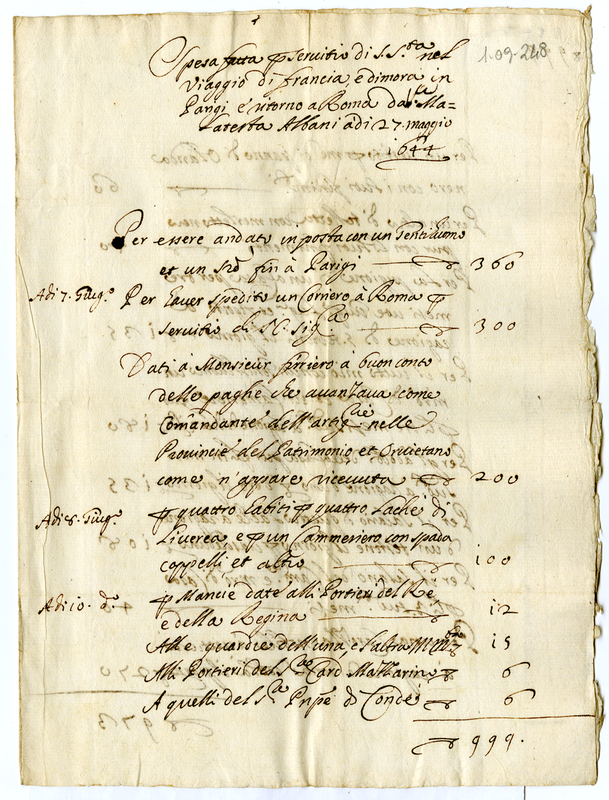 1.09.248
Spesa fatta p servitio di S. S.ta nel
Viaggio di francia e dimora in
Parigi e ritorno a Roma da Ma=
latesta Albani adi 27. maggio
1644
Per essere andato in posta con un Gentilhuomo
et un fin à Parigi 360
Adi 7. Giug.o Per haver spedito un Corriero à Roma p
servitio di N. Sig.re 300
Dati à Monsieur à buon conto
delle paghe che avanzava come
Comandante dell'artig.rie nelle
Provincie del Patrimonio et Orvietano
come n'appare ricevuta 200
Adi 8. Giug.o p quattro habiti p quattro Lachè di
Liverea e p un Cammeriero con spada
cappelli et altro 100
Adi 10. d.o p Mancie date alli Portieri del Rè
e della Regina 12
Alle guardie dell'una, e l'altra 15
Alli Portieri del S. Card Mazzarino 6
A quelli del S.re Pnpe di Condè 6
999.